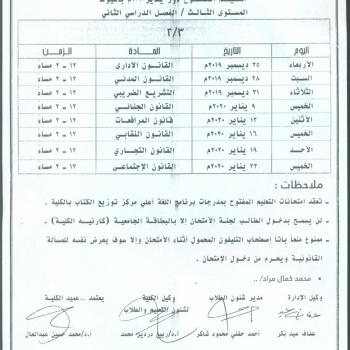 المستوى الثالث / الفصل الدراسي الثاني
٢/٣
اليوم التاريخ المادة الزمن
الأربعاء ٢٥ ديسمبر ٢٠١٩م القانون الادارى ١٢ - ٢ مساء
السبت ٢٨ ديسمبر ٢٠١٩م القانون المدني ١٢ - ٢ مساء
الثلاثاء ٣١ ديسمبر ٢٠١٩م التشريع الضريبي ١٢ - ٢ مساء
الخميس ٩ يناير ٢٠٢٠م القانون الجنائي ١٢ - ٢ مساء
الأثنين ١٣ يناير ٢٠٢٠م قانون المرافعات ١٢ - ٢ مساء
الخميس ١٦ يناير ٢٠٢٠م القانون النقابي ١٢ - ٢ مساء
الاحد ١٩ يناير ٢٠٢٠م القانون التجاري ١٢ - ٢ مساء
الخميس ٢٣ يناير ٢٠٢٠م القانون الإجتماعى ١٢ - ٢ مساء
ملاحظات :
ـ تعقد امتحانات التعليم المفتوح بمدرجات برنامج اللغة أعلي مركز توزيع الكتاب بالكلية .
ـ لن يسمح بدخول الطالب لجنة الأمتحان إلا بالبطاقة الجامعية (كارنيه الكلية) .
ـ ممنوع منعا باتا اصطحاب التليفون المحمول أثناء الأمتحان وإلا سوف يعرض نفسه للمسالة
القانونية ويحرم من دخول الإمتحان .
محمد كمال مراد/..
وكيل الإدارة مدير شئون الطلاب وكيل الكلية يعتمد .. عميد الكلية
لشئون التعليم والطلاب
عفاف عيد بكر أحمد حفني محمود شاكر أ.د/ربيع دردير محمد أ.د/محمد حسين عبدالعال